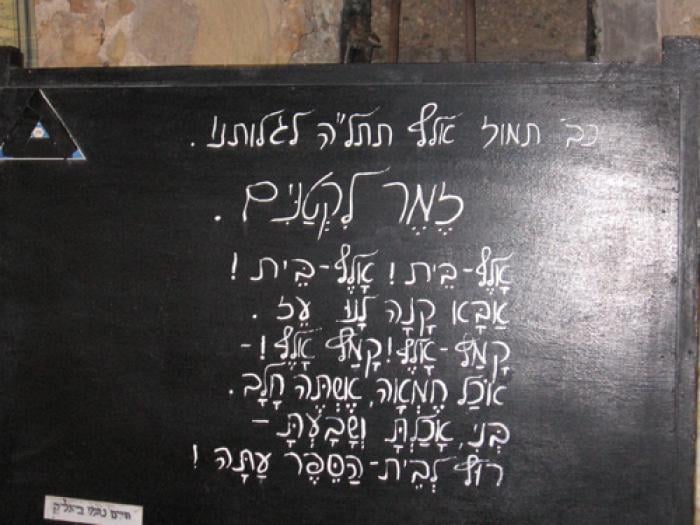 כב תמוז אלף תתל"ה לגלותנו.
זֶמֶר לִקְטַנִּים.
אָלֶף-בֵּית! אָלֶף-בֵּית!
אַבָּא קָנָה לָנוּ עֵז.
קָמַץ-אָלֶף! קָמַץ אָלֶף! -
אֹכַל חֶמְאָה, אֶשְׁתֶּה חָלָב.
בְּנִי, אָכַלְתָּ וְשָׂבָעְתָּ -
רוּץ לְבֵית-הַסֵּפֶר עַתָּה!
חיים נחמן ביאליק